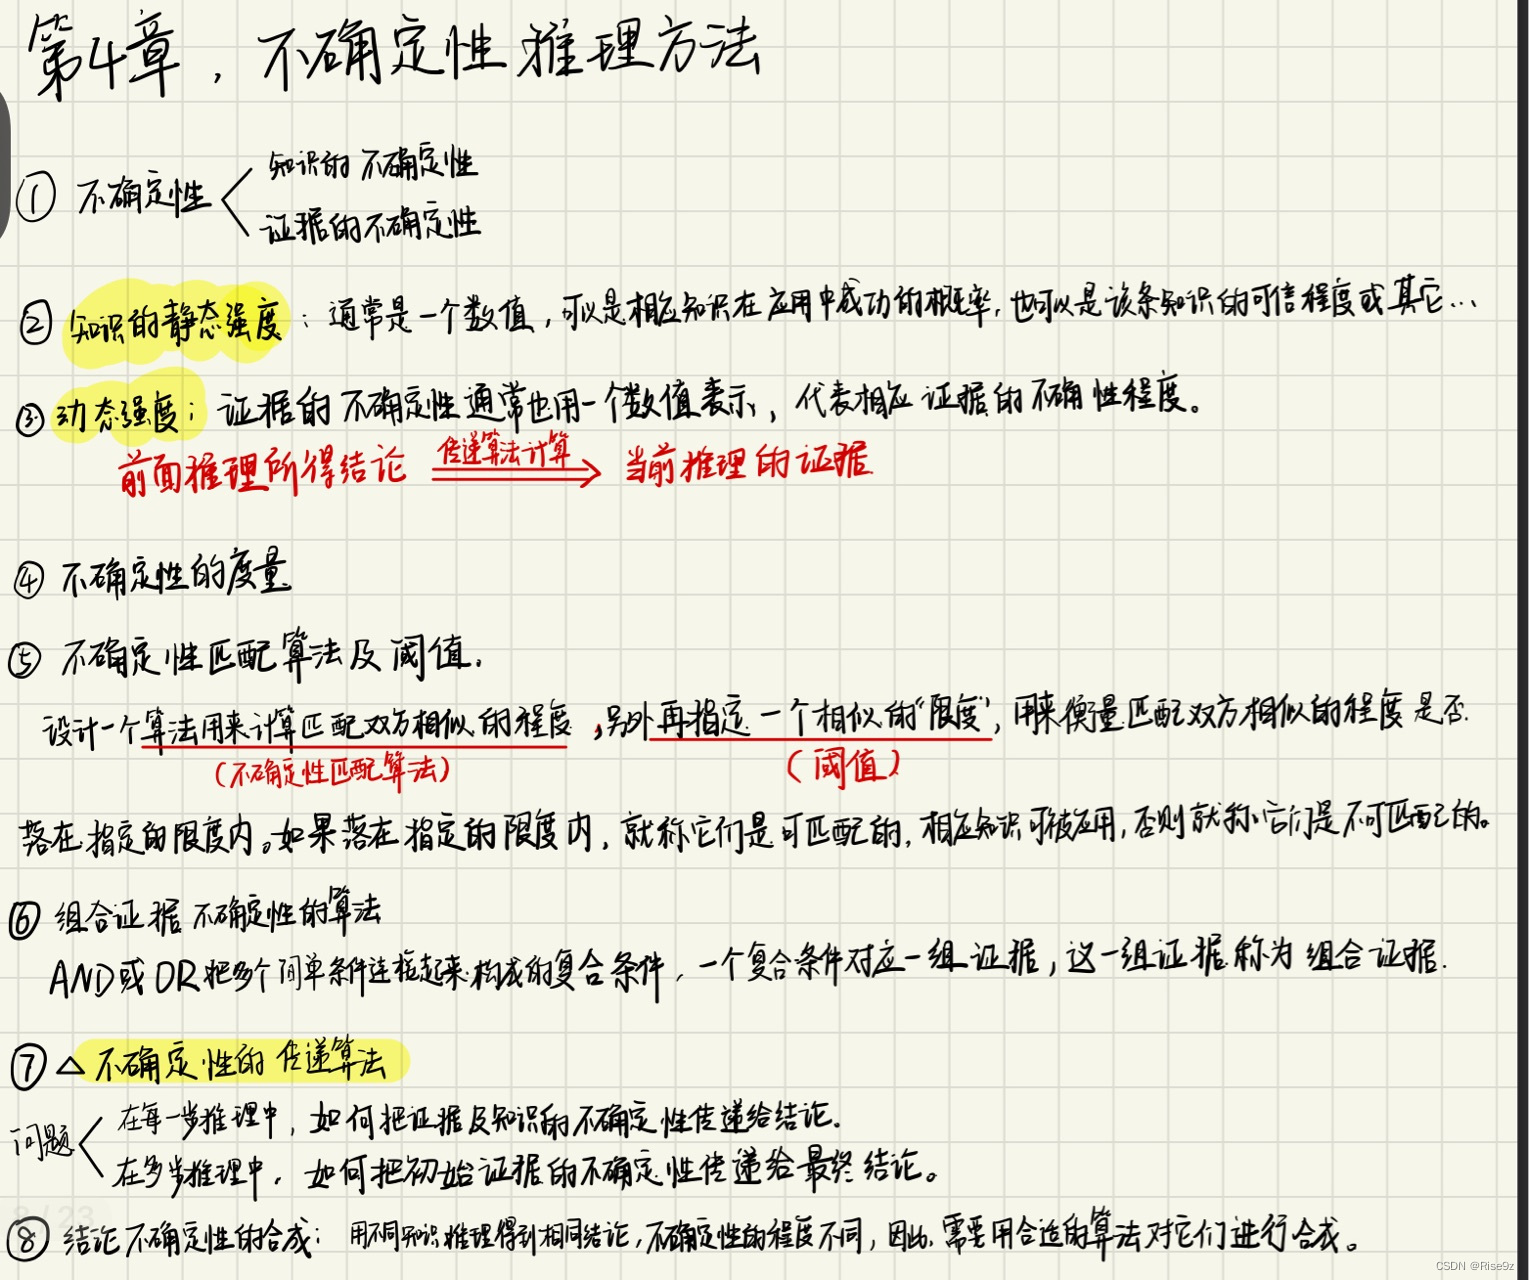 第4章，不确定性推理方法
① 不确定性
知识的不确定性
证据的不确定性
② 知识的静态强度：通常是一个数值，可以是相应知识在应用中成功的概率，也可以是该条知识的可信程度或其它…
③ 动态强度：证据的不确定性通常也用一个数值表示，代表相应证据的不确性程度。
前面推理所得结论 传递算法计算 当前推理的证据
④ 不确定性的度量
⑤ 不确定性匹配算法及阈值.
设计一个算法用来计算匹配双方相似的程度，另外再指定一个相似的“限度”，用来衡量匹配双方相似的程度是否
（不确定性匹配算法） （阈值）
落在指定的限度内。如果落在指定的限度内，就称它们是可匹配的，相应知识可被应用，否则就称它们是不可匹配的。
⑥ 组合证据不确定性的算法
AND或OR把多个简单条件连接起来构成的复合条件，一个复合条件对应一组证据，这一组证据称为组合证据.
⑦ △ 不确定性的传递算法
问题
在每一步推理中，如何把证据及知识的不确定性传递给结论.
在多步推理中，如何把初始证据的不确定性传递给最终结论。
8 / 23
⑧ 结论不确定性的合成：用不同知识推理得到相同结论，不确定性的程度不同，因此，需要用合适的算法对它们进行合成。
CSDN @Rise9z